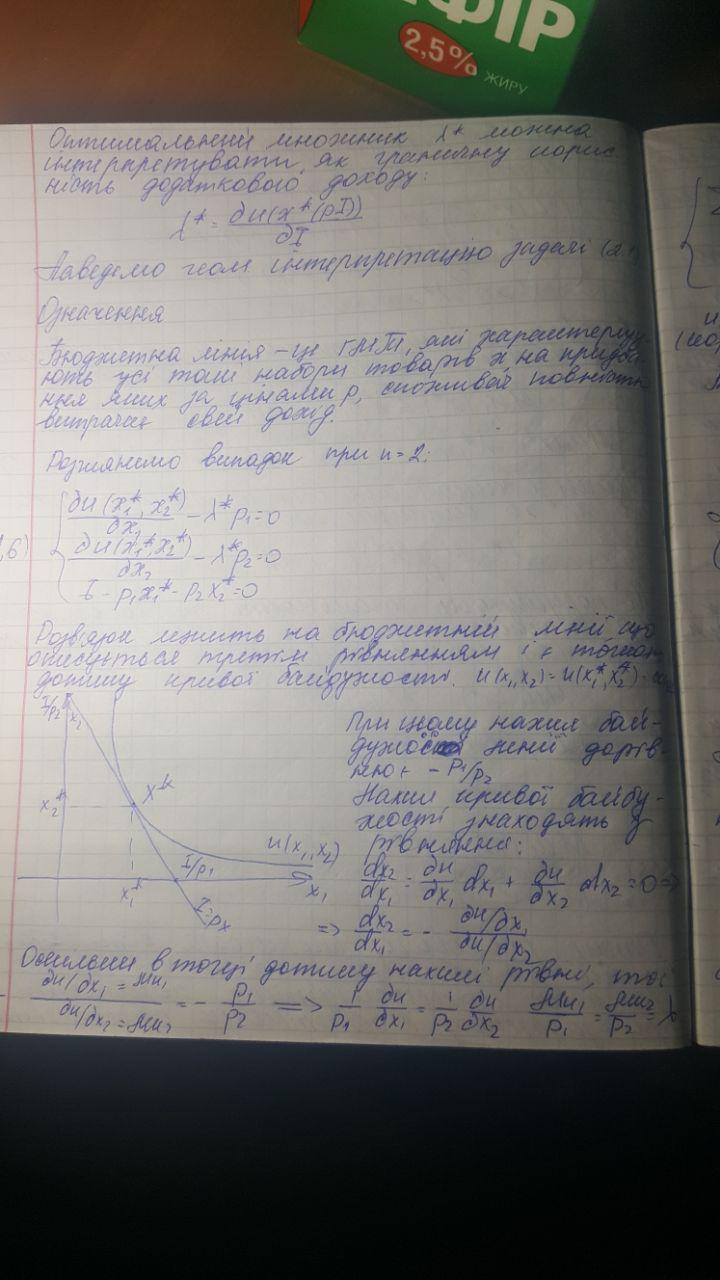 ФІР
2,5%
ЖИРУ
Оптимальний множник λ* можна
інтерпретувати, як граничну корис
ність додаткового доходу:
λ* = ∂u(x*(pI))/∂I
Наведемо геом інтерпретацію задачі
Означення
Бюджетна лінія – це ГМТ, які характеризу-
ють усі такі набори товарів x, на придба-
ння яких за цінами p, споживач повністю
витрачає свій дохід.
Розглянемо випадок при n=2:
∂u(x₁*, x₂*)/∂x₁ - λ*p₁=0
∂u(x₁*, x₂*)/∂x₂ - λ*p₂=0
I - p₁x₁* - p₂x₂*=0
Розв'язок лежить на бюджетній лінії що
описується третім рівнянням і є точкою
дотику кривої байдужості. u(x₁,x₂)=u(x₁*,x₂*)
I/p₂
x₂
x₂*
X*
u(x₁, x₂)
I/p₁
x₁*
x₁
I=px
При цьому нахил бай-
дужої лінії дорів-
нює - p₁/p₂
Нахил кривої байду-
жості знаходять з
рівняння:
dx₂/dx₁ = ∂u/∂x₁ dx₁ + ∂u/∂x₂ dx₂=0 =>
=> dx₂/dx₁ = - ∂u/∂x₁ / ∂u/∂x₂
Оскільки в точці дотику нахили рівні, то:
∂u/∂x₁ / ∂u/∂x₂ = - p₁/p₂ => 1/p₁ ∂u/∂x₁ = 1/p₂ ∂u/∂x₂